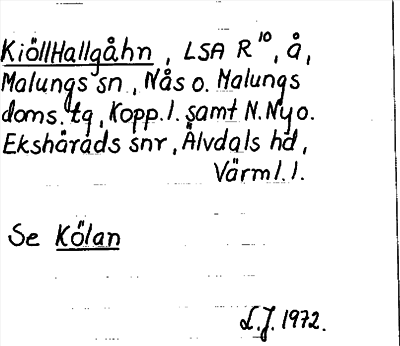 KiöllHallgåhn, LSA R¹⁰, å,
Malungs sn, Nås o. Malungs
doms. tg, Kopp. l. samt N. Ny o.
Ekshärads snr, Älvdals hd,
Värml. l.
Se Kölan
L.J. 1972.